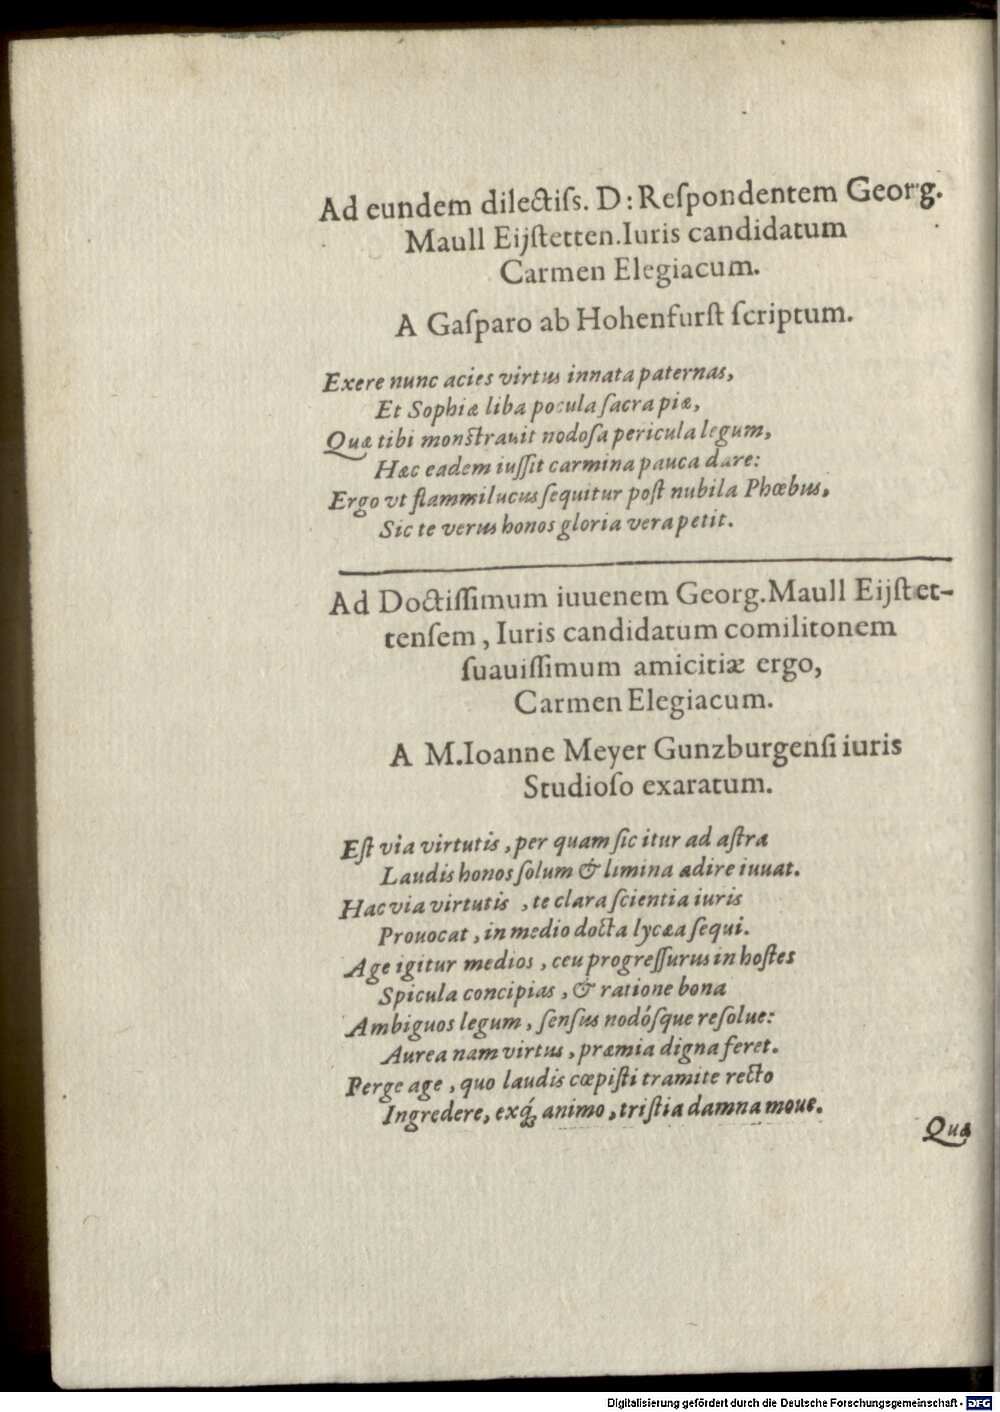 Ad eundem dilectiſs. D: Reſpondentem Georg.
Maull Eijſtetten. Iuris candidatum
Carmen Elegiacum.
A Gaſparo ab Hohenfurſt ſcriptum.
Exere nunc acies virtus innata paternas,
Et Sophiæ liba pocula ſacra piæ,
Quæ tibi monſtrauit nodoſa pericula legum,
Hæc eadem iuſſit carmina pauca dare:
Ergo vt flammilucus ſequitur poſt nubila Phœbus,
Sic te verus honos gloria vera petit.
Ad Doctiſſimum iuuenem Georg. Maull Eijſtet-
tenſem, Iuris candidatum comilitonem
ſuauiſſimum amicitiæ ergo,
Carmen Elegiacum.
A M. Ioanne Meyer Gunzburgenſi iuris
Studioſo exaratum.
Eſt via virtutis, per quam ſic itur ad aſtra
Laudis honos ſolum & limina adire iuuat.
Hac via virtutis, te clara ſcientia iuris
Prouocat, in medio docta lycæa ſequi.
Age igitur medios, ceu progreſſurus in hoſtes
Spicula concipias, & ratione bona
Ambiguos legum, ſenſus nodóſque reſolue:
Aurea nam virtus, præmia digna feret.
Perge age, quo laudis cœpiſti tramite recto
Ingredere, exq́; animo, triſtia damna moue.
Quæ
Digitalisierung gefördert durch die Deutsche Forschungsgemeinschaft - DFG